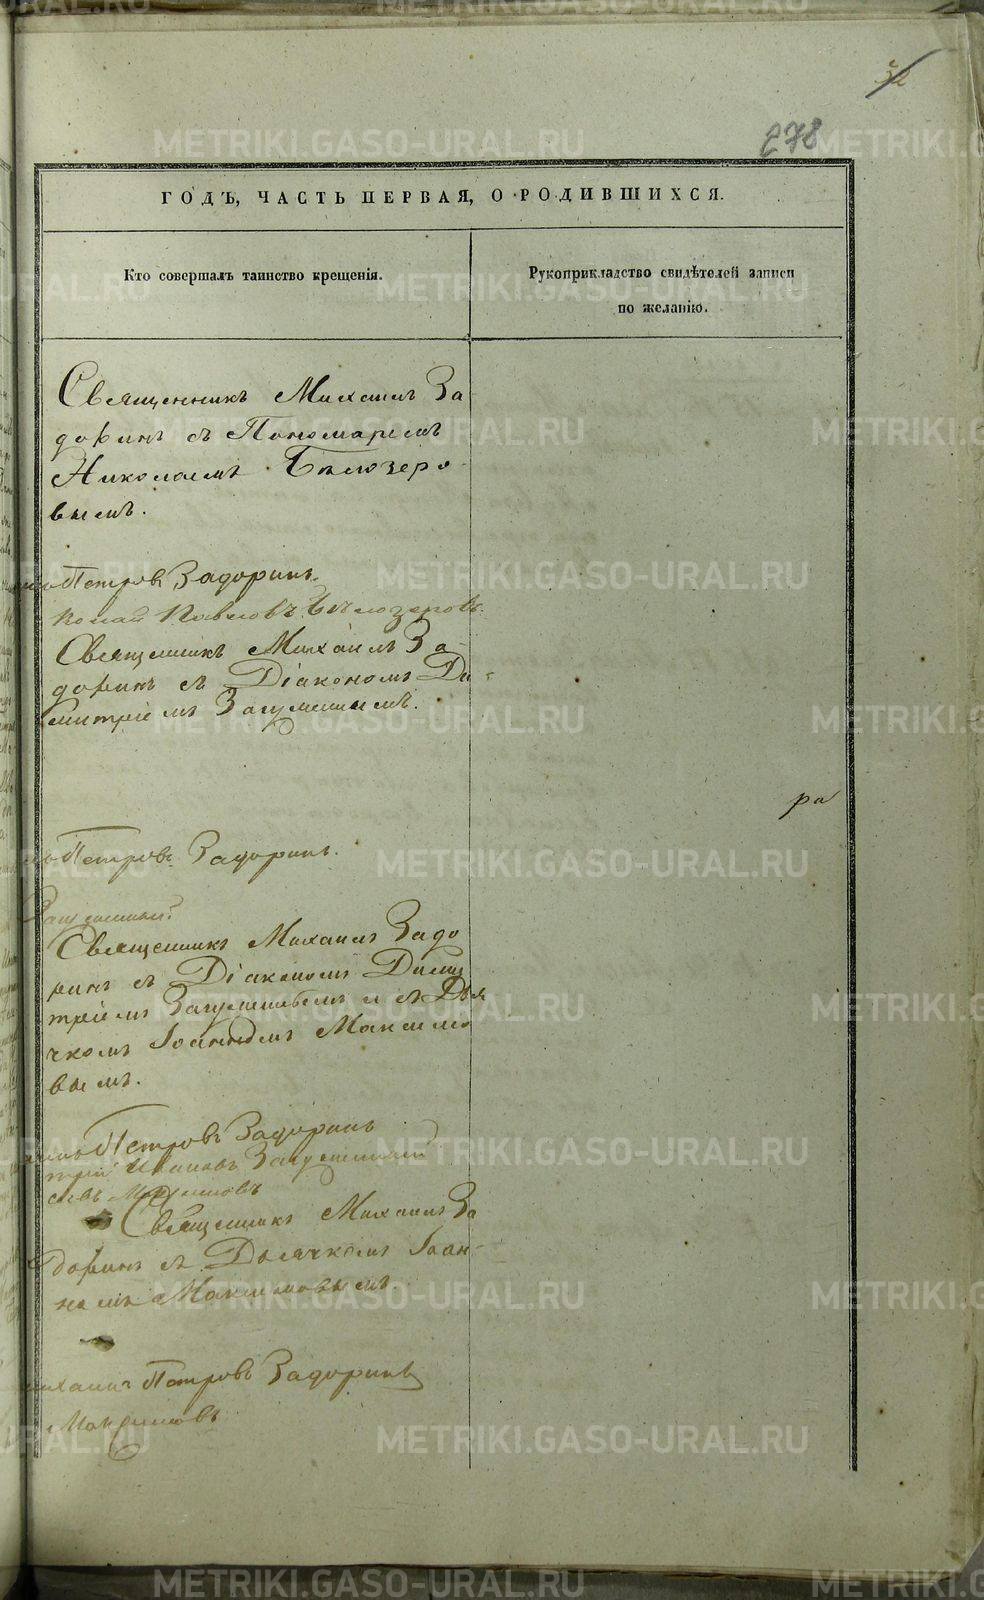 278
ГОДЪ, ЧАСТЬ ПЕРВАЯ, О РОДИВШИХСЯ.
Кто совершалъ таинство крещенія.
Рукоприкладство свидѣтелей записи
по желанію.
Священникъ Михаилъ За
доринъ съ Пономаремъ
Николаемъ Бѣлозеро
вымъ.
Петровъ Задоринъ.
колай Павловъ Бѣлозеровъ
Священникъ Михаилъ За
доринъ съ Діакономъ Ди
митріемъ Загуменнымъ.
ра
Петровъ Задоринъ.
Загуменный
Священникъ Михаилъ Задо
ринъ съ Діакономъ Дими
тріемъ Загуменнымъ и съ Дья
чкомъ Іоанномъ Максимо
вымъ.
Петровъ Задоринъ
трій Ивановъ Загуменный
Максимовъ
Священникъ Михаилъ За
доринъ съ Дьячкомъ Іоан-
номъ Максимовымъ
михаилъ Петровъ Задоринъ
Максимовъ
METRIKI.GASO-URAL.RU